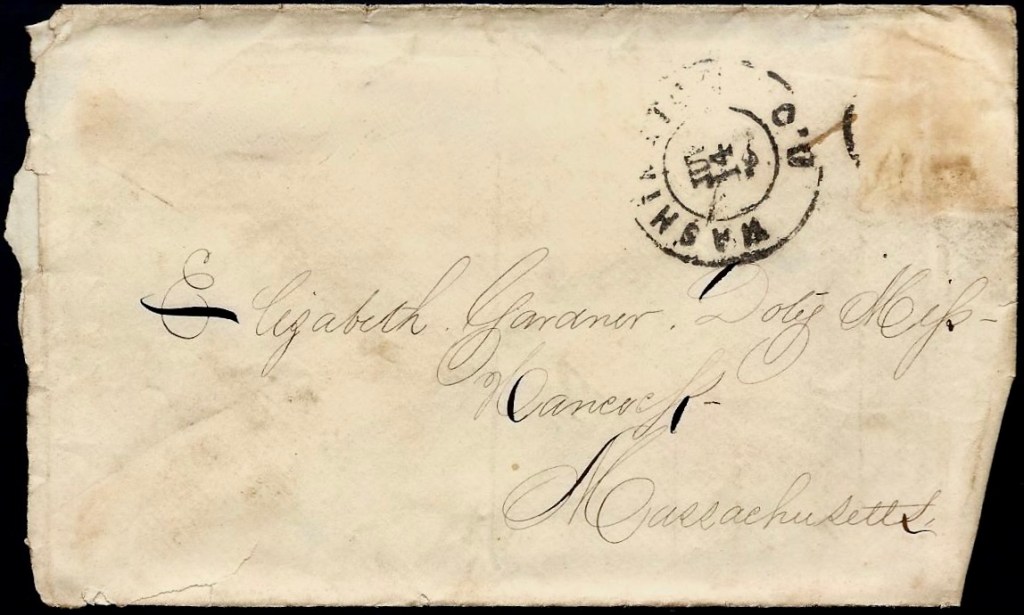 WASHINGTON D.C.
14
Elizabeth Gardner Doty Miss
Hancock
Massachusetts.